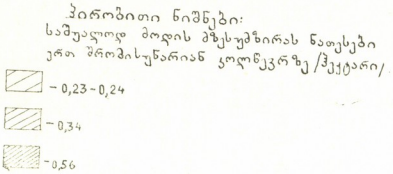 პირობითი ნიშნები:
საშუალოდ მოდის მზესუმზირას ნათესები
ერთ შრომისუნარიან კოლნეურზე /ჰექტარი/
– 0,23-0,24
– 0,34
– 0,56